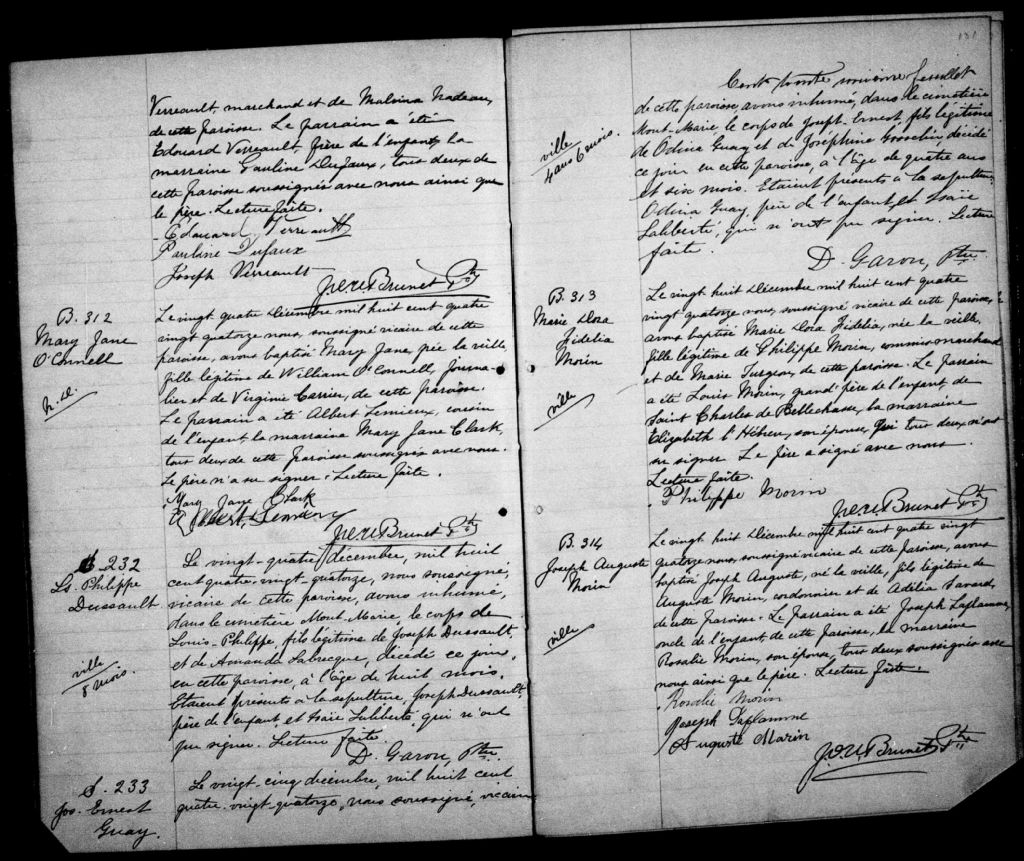 Verreault, marchand et de Malvina Nadeau,
de cette paroisse. Le parrain a été
Edouard Verreault, frère de l'enfant, la
marraine Pauline Dufaux, tous deux de
cette paroisse soussignés avec nous ainsi que
le père. Lecture faite.
Edouard Verreault
Pauline Dufaux
Joseph Verreault
Brunet Ptre
B. 312
Mary Jane
O'Connell
n.d.
Le vingt quatre Décembre mil huit cent quatre
vingt quatorze nous, soussigné vicaire de cette
paroisse, avons baptisé Mary Jane, née la veille,
fille légitime de William O'Connell, journa-
lier et de Virginie Carrier, de cette paroisse.
Le parrain a été Albert Lemieux, cousin
de l'enfant la marraine Mary Jane Clark,
tous deux de cette paroisse soussignés avec nous.
Le père n'a su signer. Lecture faite.
Mary Jane Clark
Albert Lemieux
Brunet Ptre
S. 232
Ls. Philippe
Dussault
ville
8 mois.
Le vingt-quatre décembre, mil huit
cent quatre-vingt-quatorze, nous soussigné,
vicaire de cette paroisse, avons inhumé,
dans le cimetière Mont-Marie, le corps de
Louis-Philippe, fils légitime de Joseph Dussault,
et de Amanda Labrecque, décédé ce jour,
en cette paroisse, à l'âge de huit mois.
Etaient présents à la sépulture, Joseph Dussault,
père de l'enfant, et Isaïe Laliberté, qui n'ont
pu signer. Lecture faite.
D. Garon, Ptre
S. 233
Jos. Ernest
Guay.
Le vingt-cinq décembre, mil huit cent
quatre-vingt-quatorze, nous soussigné, vicaire
131
Cent trente unième feuillet
ville
4 ans 6 mois.
de cette paroisse avons inhumé, dans le cimetière
Mont-Marie le corps de Joseph-Ernest, fils légitime
de Odina Guay et de Joséphine Gosselin, décédé
ce jour en cette paroisse, à l'âge de quatre ans
et six mois. Etaient présents à la sépulture,
Odina Guay, père de l'enfant, et Isaïe
Laliberté, qui n'ont pu signer. Lecture
faite.
D. Garon, Ptre
B. 313
Marie Dora
Fidelia
Morin
ville
Le vingt huit Décembre mil huit cent quatre
vingt quatorze nous, soussigné vicaire de cette paroisse,
avons baptisé Marie Dora Fidelia, née la veille,
fille légitime de Philippe Morin, commis-marchand
et de Marie Turgeon, de cette paroisse. Le parrain
a été Louis Morin, grand'père de l'enfant, de
Saint Charles de Bellechasse, la marraine
Elizabeth l'Hébreu, son épouse, qui tous deux n'ont
su signer. Le père a signé avec nous.
Lecture faite.
Philippe Morin
Brunet Ptre
B. 314
Joseph Auguste
Morin
ville
Le vingt huit Décembre mil huit cent quatre vingt
quatorze nous, soussigné vicaire de cette paroisse, avons
baptisé Joseph Auguste, né la veille, fils légitime de
Auguste Morin, cordonnier et de Adélia Savard,
de cette paroisse. Le parrain a été Joseph Laflamme,
oncle de l'enfant de cette paroisse, la marraine
Rosalie Morin, son épouse, tous deux soussignés avec
nous ainsi que le père. Lecture faite.
Rosalie Morin
Joseph Laflamme
Auguste Morin
Brunet Ptre